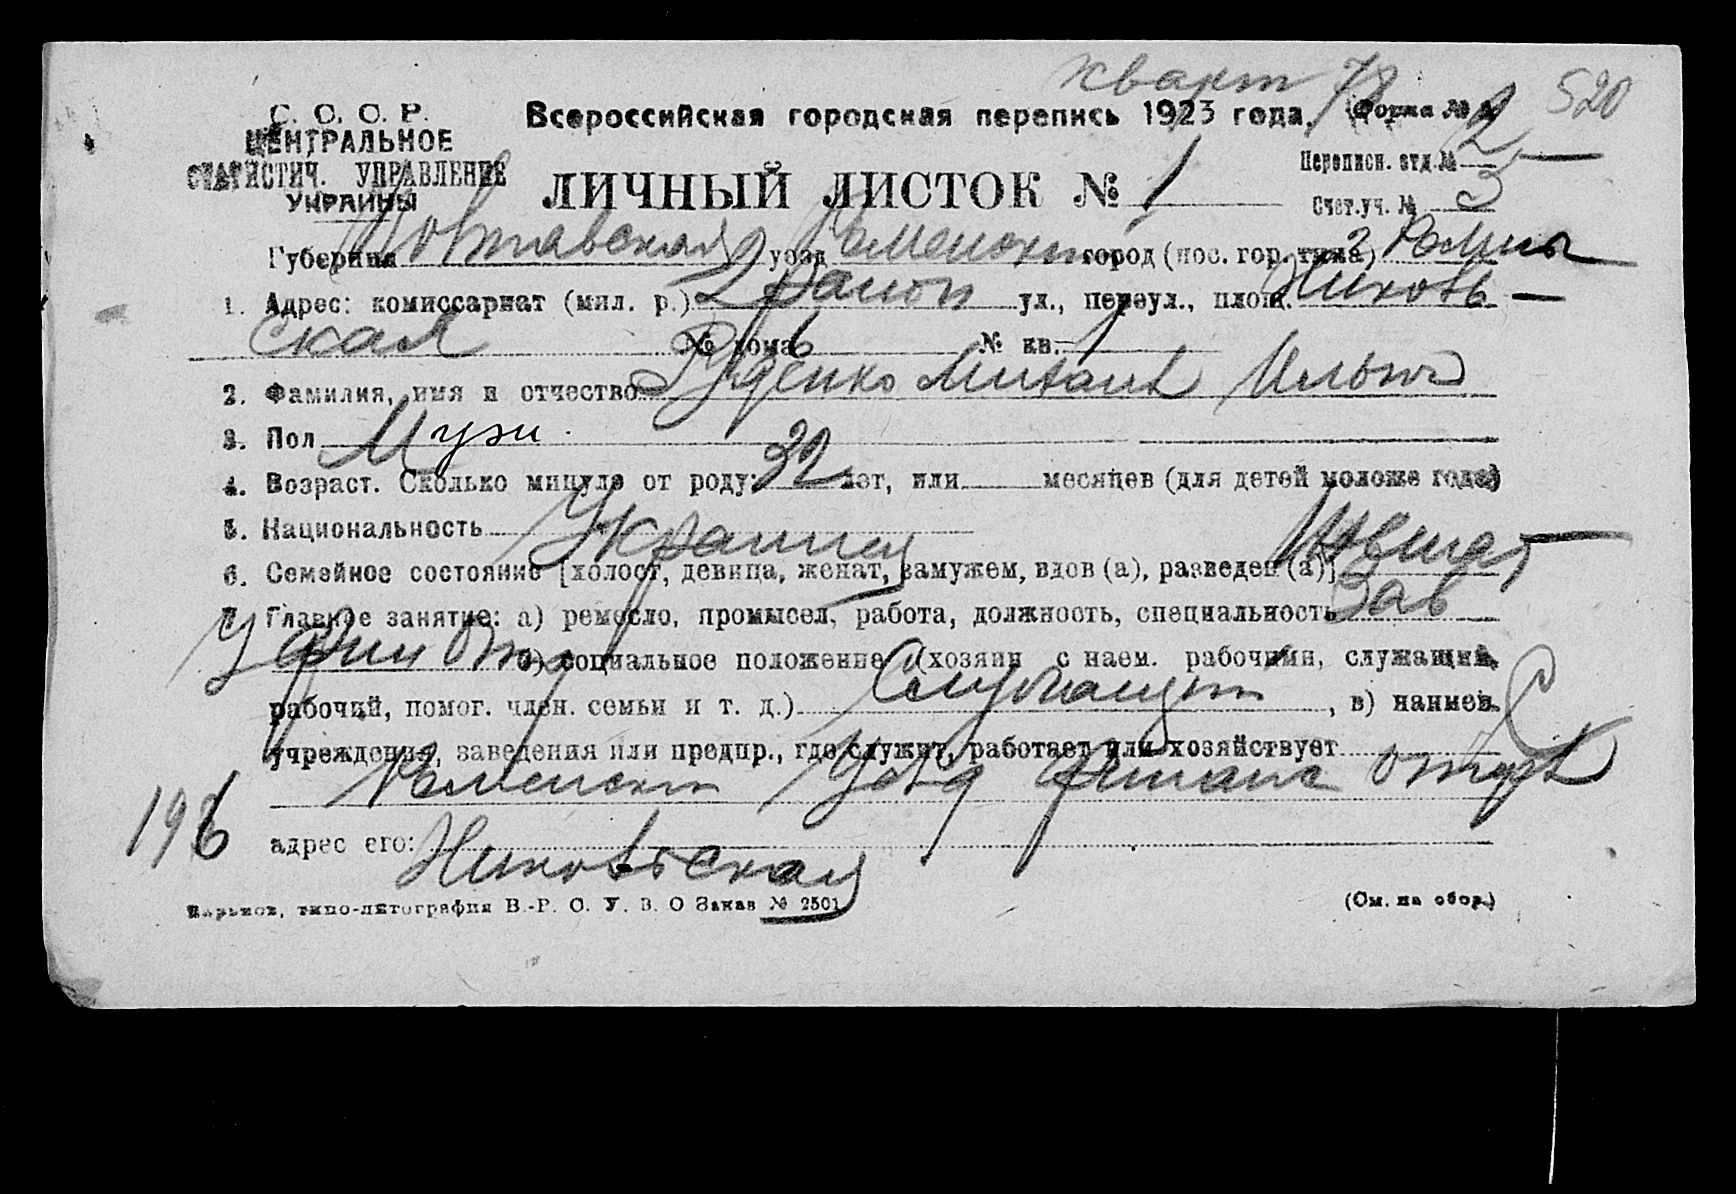 кварт 78 520
С. С. С. Р.
ЦЕНТРАЛЬНОЕ
СТАТИСТИЧ. УПРАВЛЕНИЕ
УКРАИНЫ
Всероссийская городская перепись 1923 года.
(Форма № 
Переписн. отд. № 2
ЛИЧНЫЙ ЛИСТОК № 1
Счет.уч. № 3
Губерния Полтавская уезд Роменский город (пос. гор. типа) г Ромны
1. Адрес: комиссариат (мил. р.) 2 район ул., переул., площ.
ская № дома 6 № кв. 1
2. Фамилия, имя и отчество Руденко Михаил Ильич
3. Пол Муж.
4. Возраст. Сколько минуло от роду: 32 лет, или месяцев (для детей моложе года)
5. Национальность Украинец
6. Семейное состояние [холост, девица, женат, замужем, вдов (а), разведен (а)]
7. Главное занятие: а) ремесло, промысел, работа, должность, специальность Зав
У Фин Отд б) социальное положение (хозяин с наем. рабочими, служащий,
рабочий, помог. член. семьи и т. д.) Служащий, в) наимен.
учреждения, заведения или предпр., где служит, работает или хозяйствует
Роменский Уезд Финанс отдел
196
адрес его:
Харьков, типо-литография В.-Р. С. У. В. О Заказ № 2501
(См. на обор.)